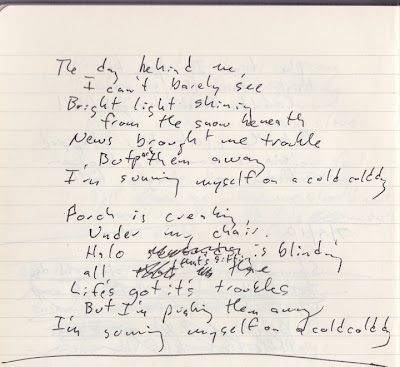 The day behind me
I can't barely see
Bright light shining
from the snow beneath
News brought me trouble
But them away
I'm sunning myself on a cold cold day
Porch is creaking
Under my chair.
Halo is blinding
all that's sittin there
Life's got it's troubles
But I'm pushing them away
I'm sunning myself on a cold cold day